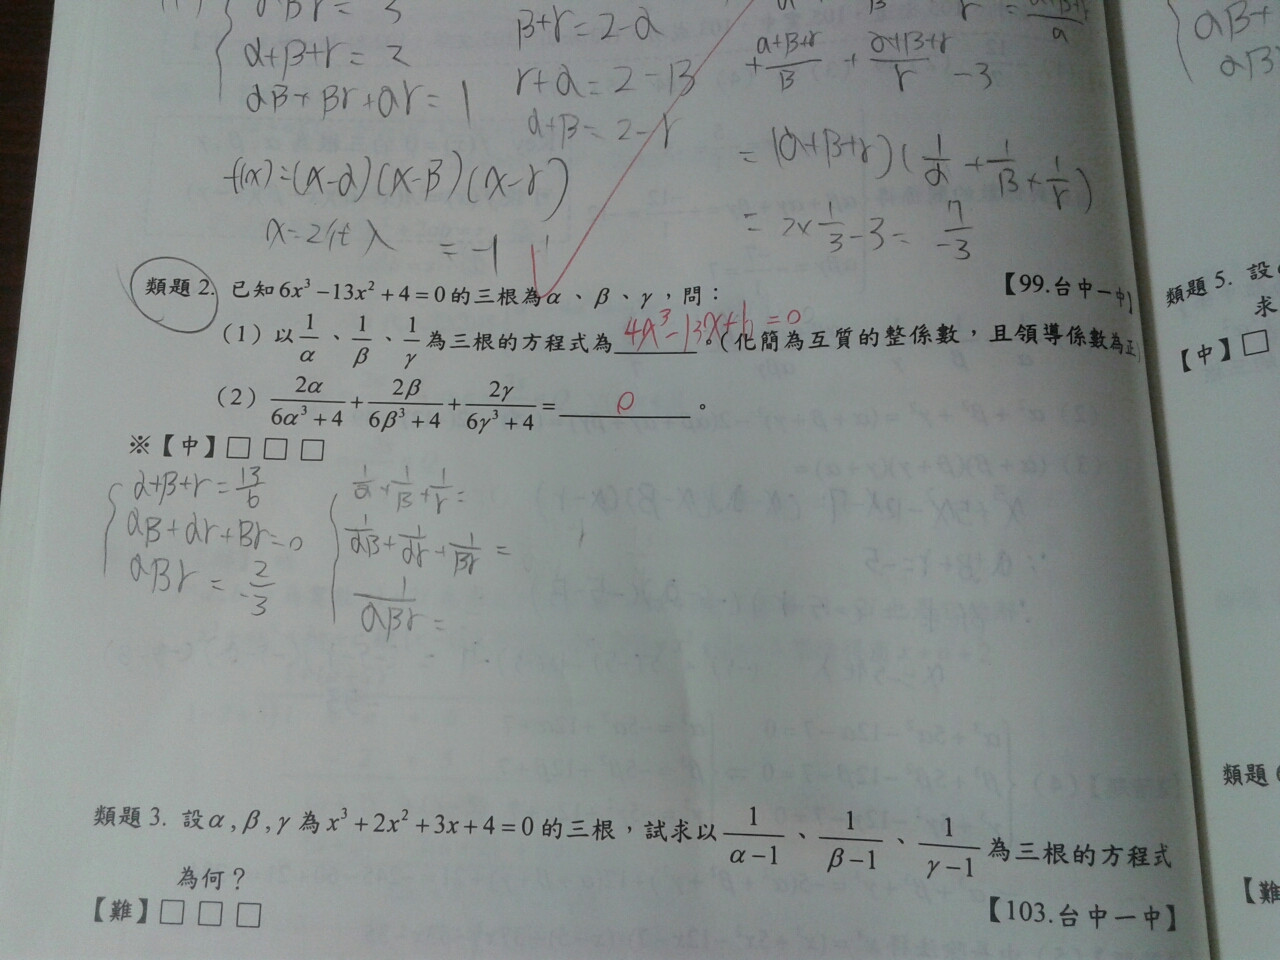 αβγ = 3
α+β+γ = 2
αβ + βγ + αγ = 1
β+γ = 2-α
γ+α = 2-β
α+β = 2-γ
f(x) = (x-α)(x-β)(x-γ)
x=2代入 = -1
+ (α+β+γ)/β + (α+β+γ)/γ - 3
= (α+β+γ)(1/α + 1/β + 1/γ)
= 2×1/3 - 3 = 7/-3
類題2. 已知6x³-13x²+4=0的三根為α、β、γ,問:
【99.台中一中】
(1) 以1/α、1/β、1/γ為三根的方程式為 4x³-13x+6=0 。(化簡為互質的整係數,且領導係數為正)
(2) 2α/(6α³+4) + 2β/(6β³+4) + 2γ/(6γ³+4) = 0 。
※【中】□ □ □
α+β+γ = 13/6
αβ+αγ+βγ = 0
αβγ = -2/3
1/α + 1/β + 1/γ =
1/αβ + 1/αγ + 1/βγ =
1/αβγ =
類題3. 設α,β,γ為x³+2x²+3x+4=0的三根,試求以1/(α-1)、1/(β-1)、1/(γ-1)為三根的方程式
為何?
【難】□ □ □
【103.台中一中】
αβ+
αβ
類題5. 設
求
【中】□
類題
【難